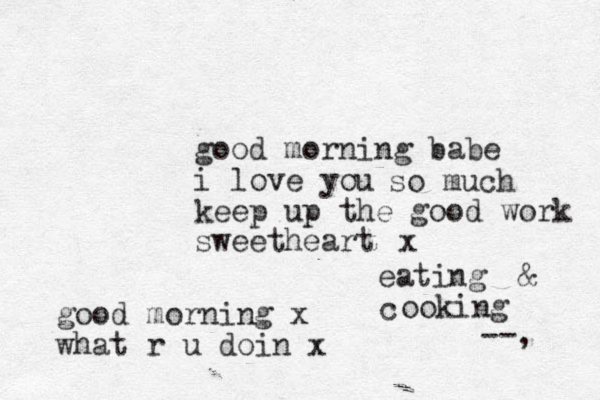 good morning babe
i love you so much
keep up the good work
sweetheart x
eating &
cooking
--,
good morning x
what r u doin x